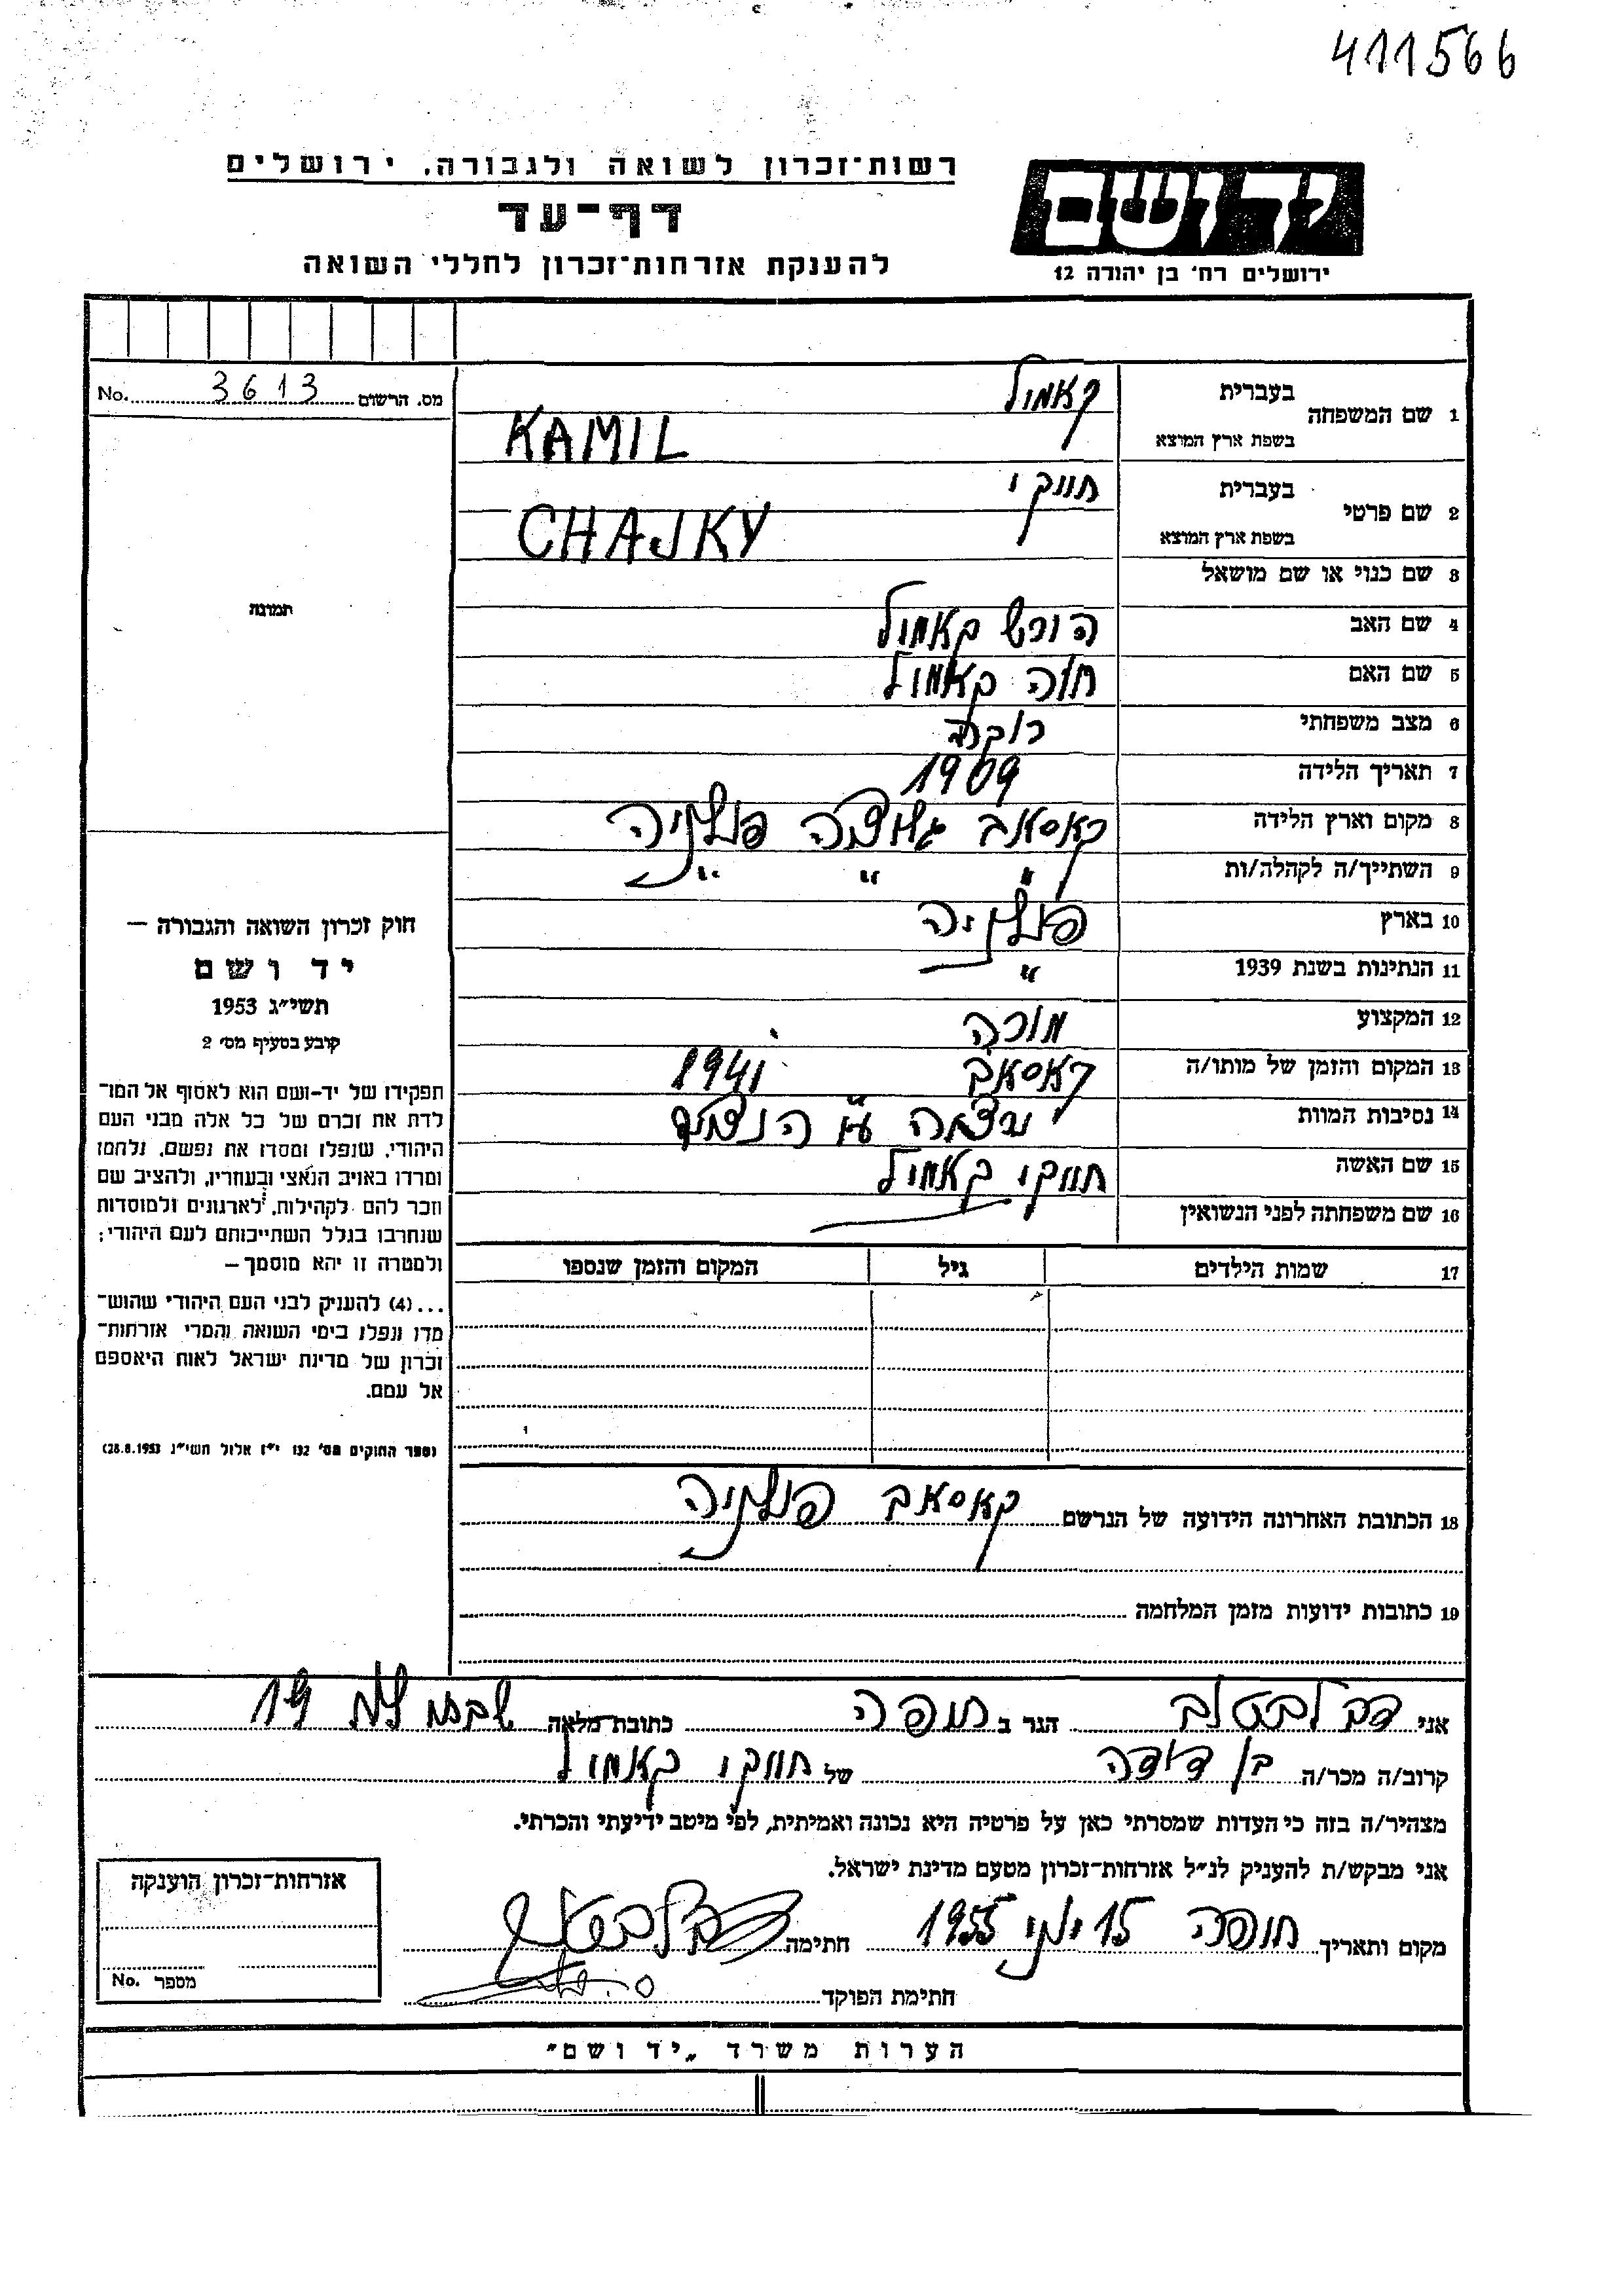 411566
רשות־זכרון לשואה ולגבורה. ירושלים
דף־עד
להענקת אזרחות־זכרון לחללי השואה
יד ושם
ירושלים רח' בן יהודה 12
מס. הרשום 3613 No.
1 שם המשפחה
בעברית קאמיל
בשפת ארץ המוצא KAMIL
2 שם פרטי
בעברית חייקי
בשפת ארץ המוצא CHAJKY
3 שם כנוי או שם מושאל
4 שם האב הירש קאמיל
5 שם האם חיה קאמיל
6 מצב משפחתי רוקה
7 תאריך הלידה 1909
8 מקום וארץ הלידה קאסאב פולניה
9 השתייך/ה לקהלה/ות " " "
10 בארץ פולניה
11 הנתינות בשנת 1939 "
12 המקצוע מורה
13 המקום והזמן של מותו/ה קאסאב 1941
14 נסיבות המוות נרצחה ע"י הנאצים
15 שם האשה חייקי קאמיל
16 שם משפחתה לפני הנשואין
17 שמות הילדים גיל המקום והזמן שנספו
18 הכתובת האחרונה הידועה של הנרשם קאסאב פולניה
19 כתובות ידועות מזמן המלחמה
תמונה
חוק זכרון השואה והגבורה –
יד ושם
תשי״ג 1953
קובע בסעיף מס׳ 2
תפקידו של יד-ושם הוא לאסוף אל המו־
לדת את זכרם של כל אלה מבני העם
היהודי, שנפלו ומסרו את נפשם, נלחמו
ומרדו באויב הנאצי ובעוזריו, ולהציב שם
וזכר להם לקהילות, לארגונים ולמוסדות
שנחרבו בגלל השתייכותם לעם היהודי;
ולמטרה זו יהא מוסמך –
...(4) להעניק לבני העם היהודי שהוש־
מדו ונפלו בימי השואה והמרי אזרחות־
זכרון של מדינת ישראל לאות היאספם
אל עמם.
(ספר החוקים מס׳ 132 י״ז אלול תשי״ג 28.8.1953)
אני הגר ב חיפה כתובת מלאה 19
קרוב/ה מכר/ה בן דודה של חייקי קאמיל
מצהיר/ה בזה כי העדות שמסרתי כאן על פרטיה היא נכונה ואמיתית, לפי מיטב ידיעתי והכרתי.
אני מבקש/ת להעניק לנ״ל אזרחות־זכרון מטעם מדינת ישראל.
מקום ותאריך חיפה 15 יוני 1955 חתימה
חתימת הפוקד
אזרחות־זכרון הוענקה
מספר No.
הערות משרד „יד ושם״